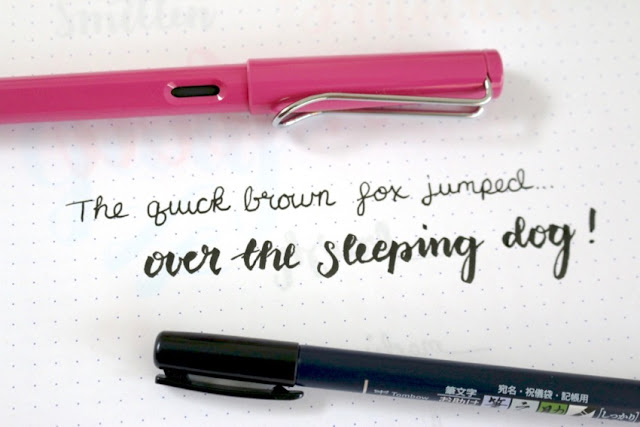 Smitten
The quick brown fox jumped...
over the sleeping dog!
Tombow
筆文字
宛名・祝儀袋・記帳用
しっかり